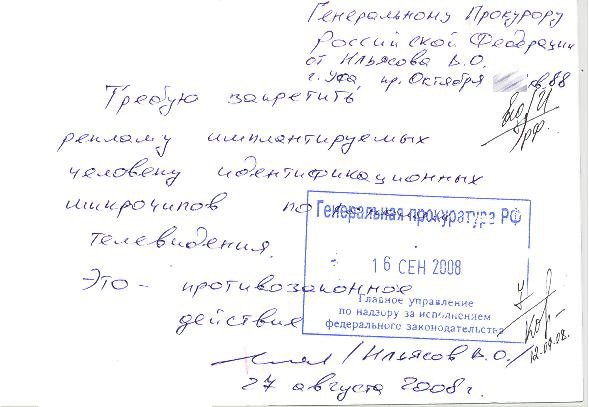 Генеральному Прокурору
Российской Федерации
от Ильясова В.О.
г. Уфа пр. Октября кв. 88
Требую запретить
рекламу имплантируемых
человеку идентификационных
микрочипов по
телевидения.
Это - противозаконное
действие
Генеральная прокуратура РФ
16 СЕН 2008
Главное управление
по надзору за исполнением
федерального законодательства
/ Ильясов В.О.
12.09.08.
27 августа 2008 г.